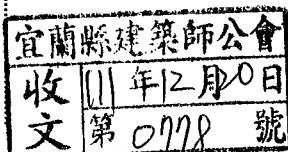 宜蘭縣建築師公會
收文
111年12月20日
第0778號